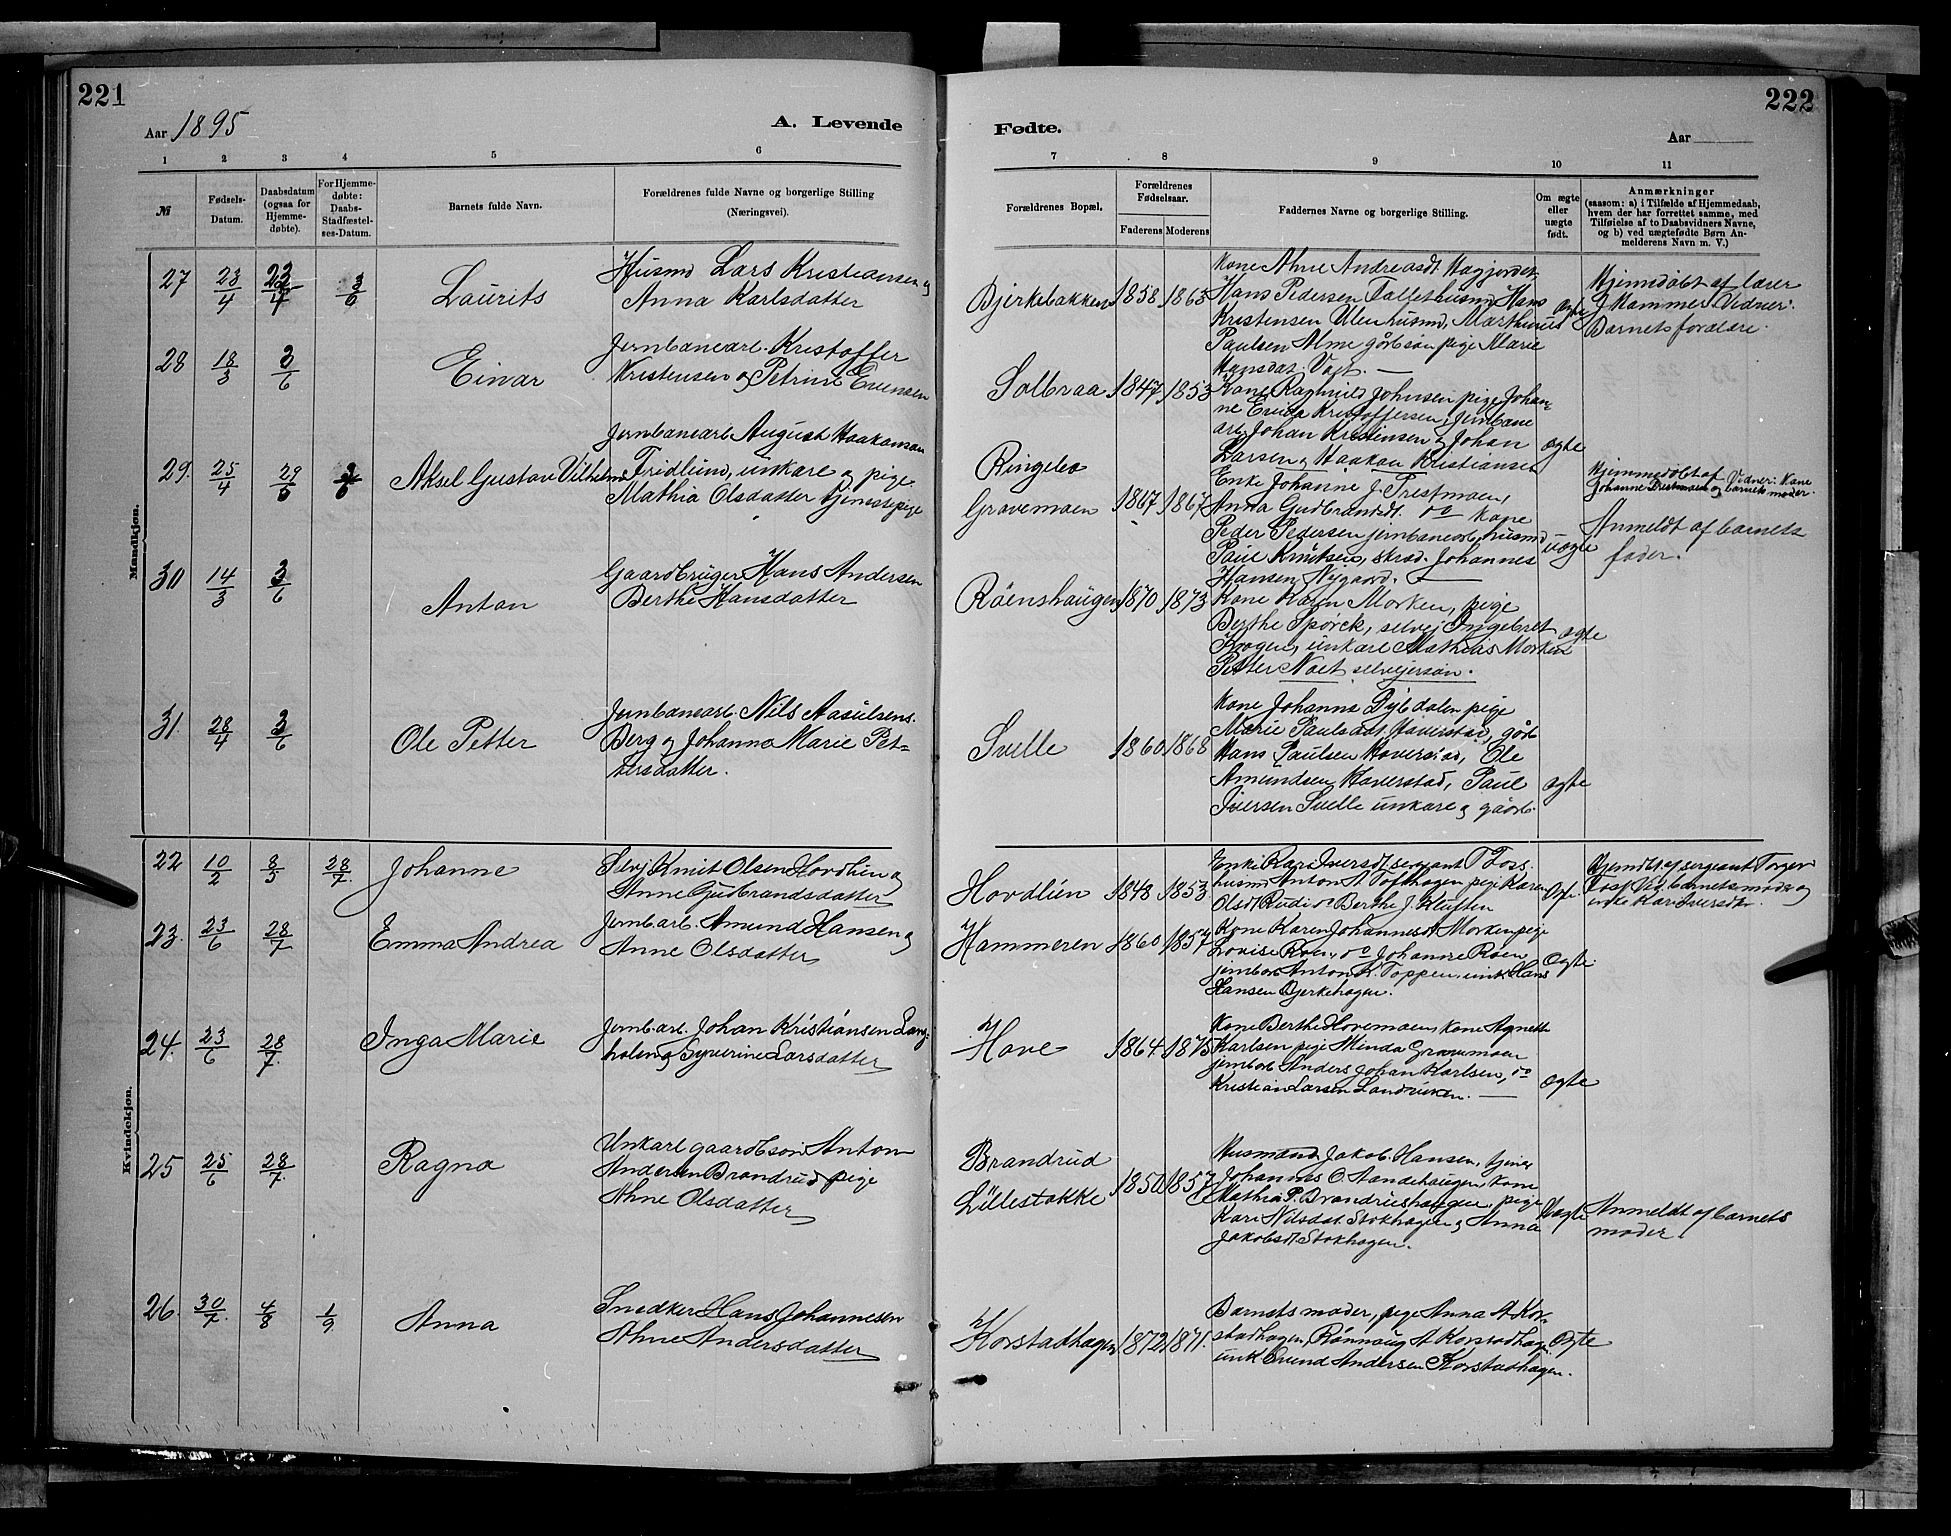 221
Aar 1895
A. Levende
1 2 3 4 5 6
№
Fødsels-Datum.
Daabsdatum (ogsaa for Hjemmedøbte).
For Hjemmedøbte: Daabs-Stadfæstelses-Datum.
Barnets fulde Navn.
Forældrenes fulde Navne og borgerlige Stilling (Næringsvei).
Mandkjøn.
27 23/4 3/6 Laurits
Husmd Lars Kristiansen og
Anna Karlsdatter
28 18/3 3/6 Einar
Jernbanearb. Kristoffer
Kristensen og Petrine Evensen
29. 25/4 3/6 Aksel Gustav Vilhelm
Jernbanearb August Haakansan
Fridlund, unkare og pige
Mathia Olsdatter tjenestepige
30 14/3 3/6 Anton
Gaardbruger Hans Andersen
Berthe Hansdatter
31. 28/4 3/6 Ole Petter
Jernbanearb. Nils Aasulsens.
Berg og Johanna Marie Pet=
tersdatter.
Kvindekjøn.
22 10/2 28/7. Johanne
Selvej Knut Olsen Hovdlien og
Anne Gudbrandsdatter
23. 23/6 28/7 Emma Andrea
Jernb.arb. Amund Hansen og
Anne Olsdatter
24. 23/6 28/7. Inga Marie
Jernb.arb. Johan Kristiansen Lang-
holen og Syverine Larsdatter
25 25/6 28/7. Ragna
Unkarl gaardbsøn Anton
Andersen Brandrud pige
Ahne Olsdatter
26. 30/7. 4/8 1/9 Anna
Snedker Hans Johannesen
Ahne Andersdatter
222
Fødte.
Aar
7 8 9 10 11
Forældrenes Bopæl.
Forældrenes Fødselsaar.
Faderens Moderens
Faddernes Navne og borgerlige Stilling.
Om ægte eller uægte født.
Anmærkninger
(saasom: a) i Tilfælde af Hjemmedaab,
hvem der har forrettet samme, med
Tilføielse af to Daabsvidners Navne,
og b) ved uægtefødte Børn An-
melderens Navn m. V.)
Bjerkebakken 1858 1865
Kone Ahne Andreasdt Hagjordet
Hans Pedersen Fallet husmd, Hans
Kristensen Ulen husmd, Marthinus
Paulsen Alme gårbsøn pige Marie
Hansdat. Vogt. —
ægte
Hjemdøbt af lærer
J Hammer Vidner:
Barnets forældre.
Solbraa 1847 1853
Kone Ragnhild Johnsen pige Johan-
ne Kristoffersen, Jernbane
arb Johan Kristensen og Johan
Larsen og Haakan Kristiansen
ægte
Ringebo
Gravemoen 1867 1867
Enke Johanne J. Prestmoen,
Anna Gudbrandsdt. do Kone
Peder Pedersen jernbanearb, husmd
Paul Knutsen, skræd. Johannes
Hansen Nygaard. —
uægte
Hjemmedøbt af Vidner: Kone
Johanne Prestmoen og barnets moder.
Anmeldt af barnets
fader.
Røenshaugen 1870 1873
Kone Karen Morken, pige
Berthe Spørck, selvej Ingebret
Krogen, unkare Mathias Morken
Petter Noet selvejersøn.
ægte
Svelle 1860 1868
Kone Johanna Dybdalen pige
Marie Paulsdat Haverstad, gårb
Hans Paulsen Haverstad, Ole
Amundsen Haverstad, Paul
Iversen Svelle unkare og gårdb.
ægte
Hovdlien 1848 1853
Enke Kari Iversdt sergeant T Foss
husmd Anton A Tofthagen pige Karen
Olsdt Rudi do Berthe J. Kluften
ægte
Hjemdbt. af sergeant Torger
Foss Vid. barnets moder og
enke Kari Iversdt.
Hammeren 1860 1857
Kone Karen Johannesdt Morken pige
Lovise Roen, do Johanne Roen
jernbarb Anton K. Toppen, unk Hans
Hansen Bjerkehagen.
Ægte.
Hove 1864 1875
Kone Berthe Hovemoen, Kone Agnette
Karlsen pige Minda Gravemoen
jernbarb. Anders Johan Karlsen, do
Kristian Larsen. —
ægte
Brandrud
Lillestokke 1850 1857
Husmand Jakob Hansen, tjener
Johannes O. Sandehaugen, kone
Mathia P. Brandrudshaugen, pige
Kari Nilsdat. Stokhagen og Anna
Jakobsdt Stokhagen.
Uægte
Anmeldt af barnets
moder.
Korstadhagen 1872 1871.
Barnets moder, pige Anna A Kor-
stadhagen, Rønnaug A Korstadhagen
unk Evend Andersen Korstadhagen.
Ægte